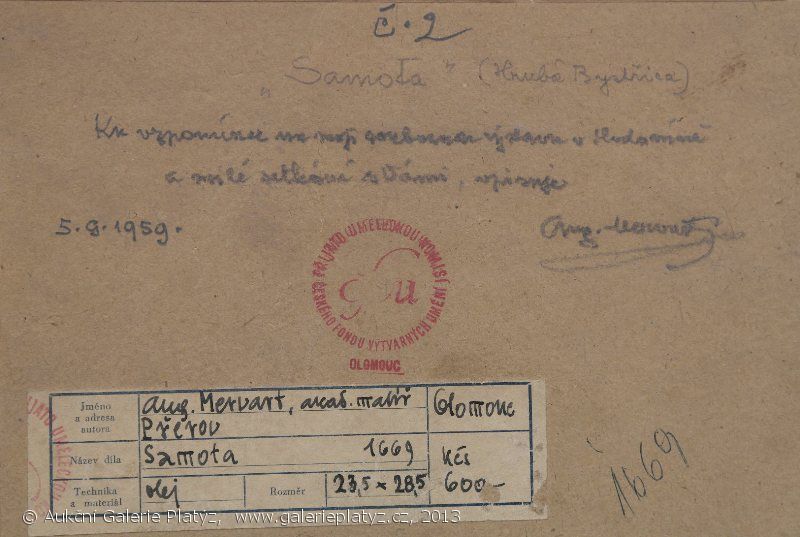 č. 2
„Samota" (Hrubá Bystřice)
Ku vzpomínce na moji výstavu v Hodoníně
a milé setkání s Vámi, vpisuje
5. 9. 1959.
Aug. Mervart
PŘIJATO UMĚLECKOU KOMISÍ
ČESKÉHO FONDU VÝTVARNÝCH UMĚNÍ
OLOMOUC
Jméno a adresa autora
Aug. Mervart, akad. malíř
Přerov
Olomouc
Název díla
Samota 1669
Kčs
600-
Technika a materiál
olej
Rozměr
23,5 × 28,5
1669
© Aukční Galerie Platýz, www.galerieplatyz.cz, 2013